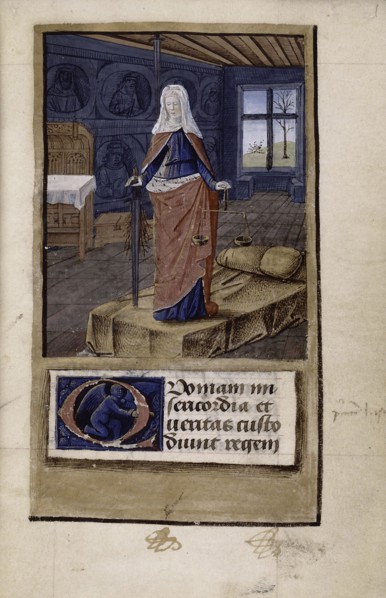 Quoniam mi
sericordia et
veritas custo
diunt regem